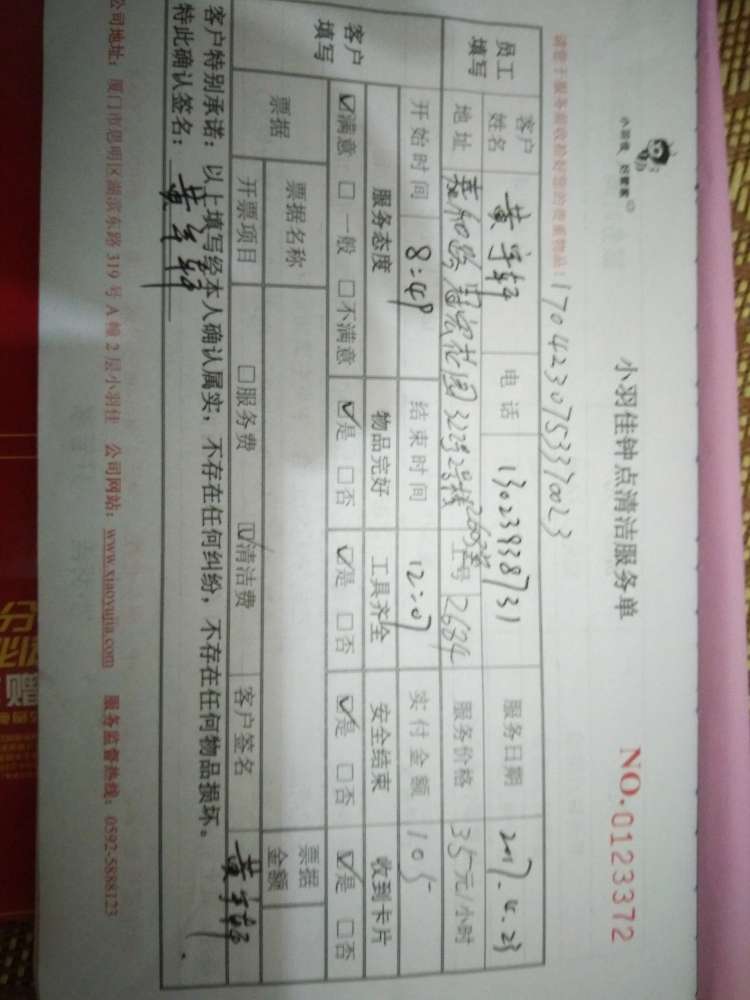 小羽佳 好管家
小羽佳钟点清洁服务单
NO.0123372
请您于服务前收拾好您的贵重物品!
1704230753370023
员工填写 客户姓名 黄宇轩 电话 13023938731 服务日期 2017.4.23
地址 嘉和路 花园322号2号楼 工号 2684 服务价格 35元/小时
开始时间 8:49 结束时间 12:07 实付金额 105
客户填写 服务态度 物品完好 工具齐全 安全结束 收到卡片
☑满意 □一般 □不满意 ☑是 □否 ☑是 □否 ☑是 □否 ☑是 □否
票据 票据名称 票据金额
开票项目 □服务费 ☑清洁费 客户签名 黄宇轩
客户特别承诺:以上填写经本人确认属实,不存在任何纠纷,不存在任何物品损坏。
特此确认签名:黄宇轩
公司地址:厦门市思明区湖滨东路 319 号 A 幢 2 层小羽佳 公司网站:www.xiaoyujia.com 服务监督热线:0592-5888123